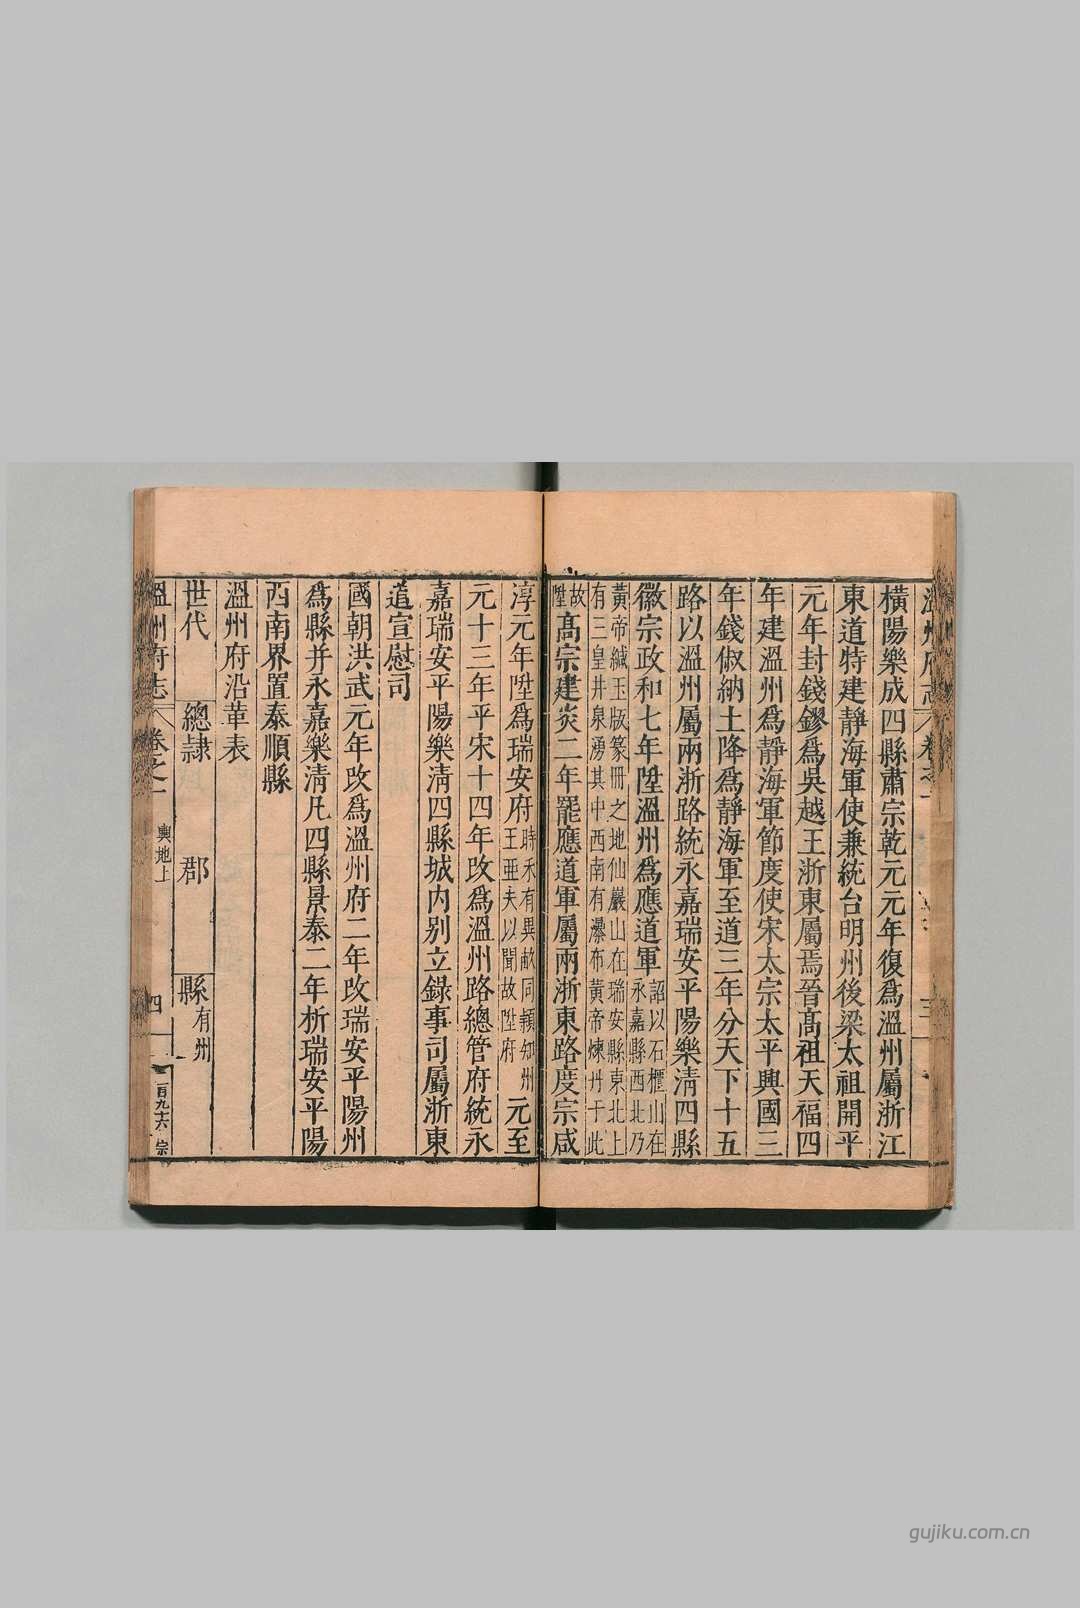 橫陽樂成四縣肅宗乾元元年復爲溫州屬浙江
東道特建靜海軍使兼統台明州後梁太祖開平
元年封錢鏐爲吳越王浙東屬焉晉髙祖天福四
年建溫州爲靜海軍節度使宋太宗太平興國三
年錢俶納土降爲靜海軍至道三年分天下十五
路以溫州屬兩浙路統永嘉瑞安平陽樂清四縣
徽宗政和七年陞溫州爲應道軍詔以石櫃山在永嘉縣西北乃
黃帝緘玉版篆冊之地仙巖山在瑞安縣東北上
有三皇井泉湧其中西南有瀑布黃帝煉丹于此
故陞髙宗建炎二年罷應道軍屬兩浙東路度宗咸
淳元年陞爲瑞安府時禾有異畝同穎知州王亜夫以聞故陞府元至
元十三年平宋十四年改爲溫州路總管府統永
嘉瑞安平陽樂清四縣城内别立錄事司屬浙東
道宣慰司
國朝洪武元年改爲溫州府二年改瑞安平陽州
爲縣并永嘉樂清凡四縣景泰二年析瑞安平陽
西南界置泰順縣
溫州府沿革表
世代 總隷 郡 縣有州
溫州府志 卷之一 輿地上 四 一百九十六 宗
gujiku.com.cn